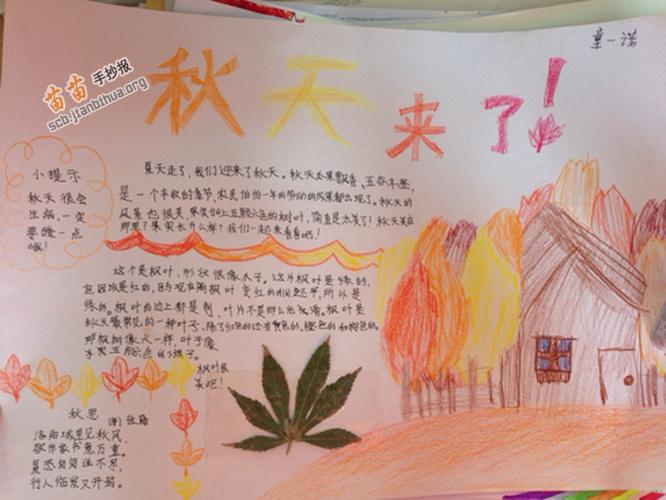 童一诺
苗苗手抄报
scb.jianbihua.org
秋天来了！
小提示
秋天很会
生病,一定
要暖一点
哦!
夏天走了,我们迎来了秋天。秋天瓜果飘香、五谷丰登,
是一个丰收的季节,农民伯伯一年的劳动的成果都出现了。秋天的
风景也很美,果实加上五颜六色的树叶,简直是太美了!秋天美在
那里?果实长什么样?我们一起来看看吧!
这个是枫叶,形状很像爪子。这片枫叶是绿的,
但因该是红的,因为现在离枫叶变红的时间还早,所以是
绿的。枫叶的边上都是刺,叶片不是那么光滑。枫叶是
秋天最常见的一种叶子,除了红色的还有黄色的,橙色的和棕色的。
那枫树像火一样,叶子像
手掌五颜六色的
枫叶很
美吧!
秋思
张籍
洛阳城里见秋风,
欲作家书意万重。
复恐匆匆说不尽,
行人临发又开封。